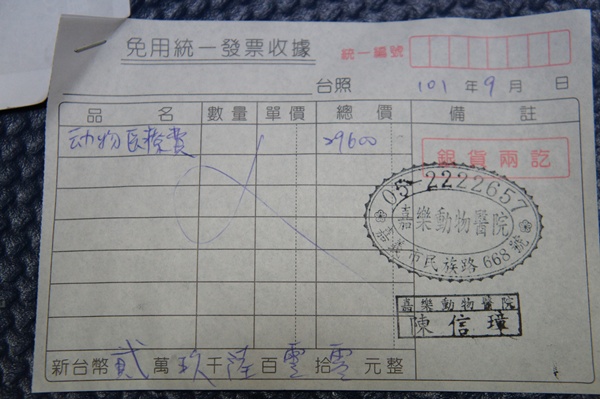 免用統一發票收據
統一編號
台照 101 年 9 月 日
品名 數量 單價 總價 備註
动物医療費 29600
銀貨兩訖
05-2222657
嘉樂動物醫院
嘉義市民族路668號
嘉樂動物醫院
陳信璋
新台幣貳萬玖千陸百零拾零元整